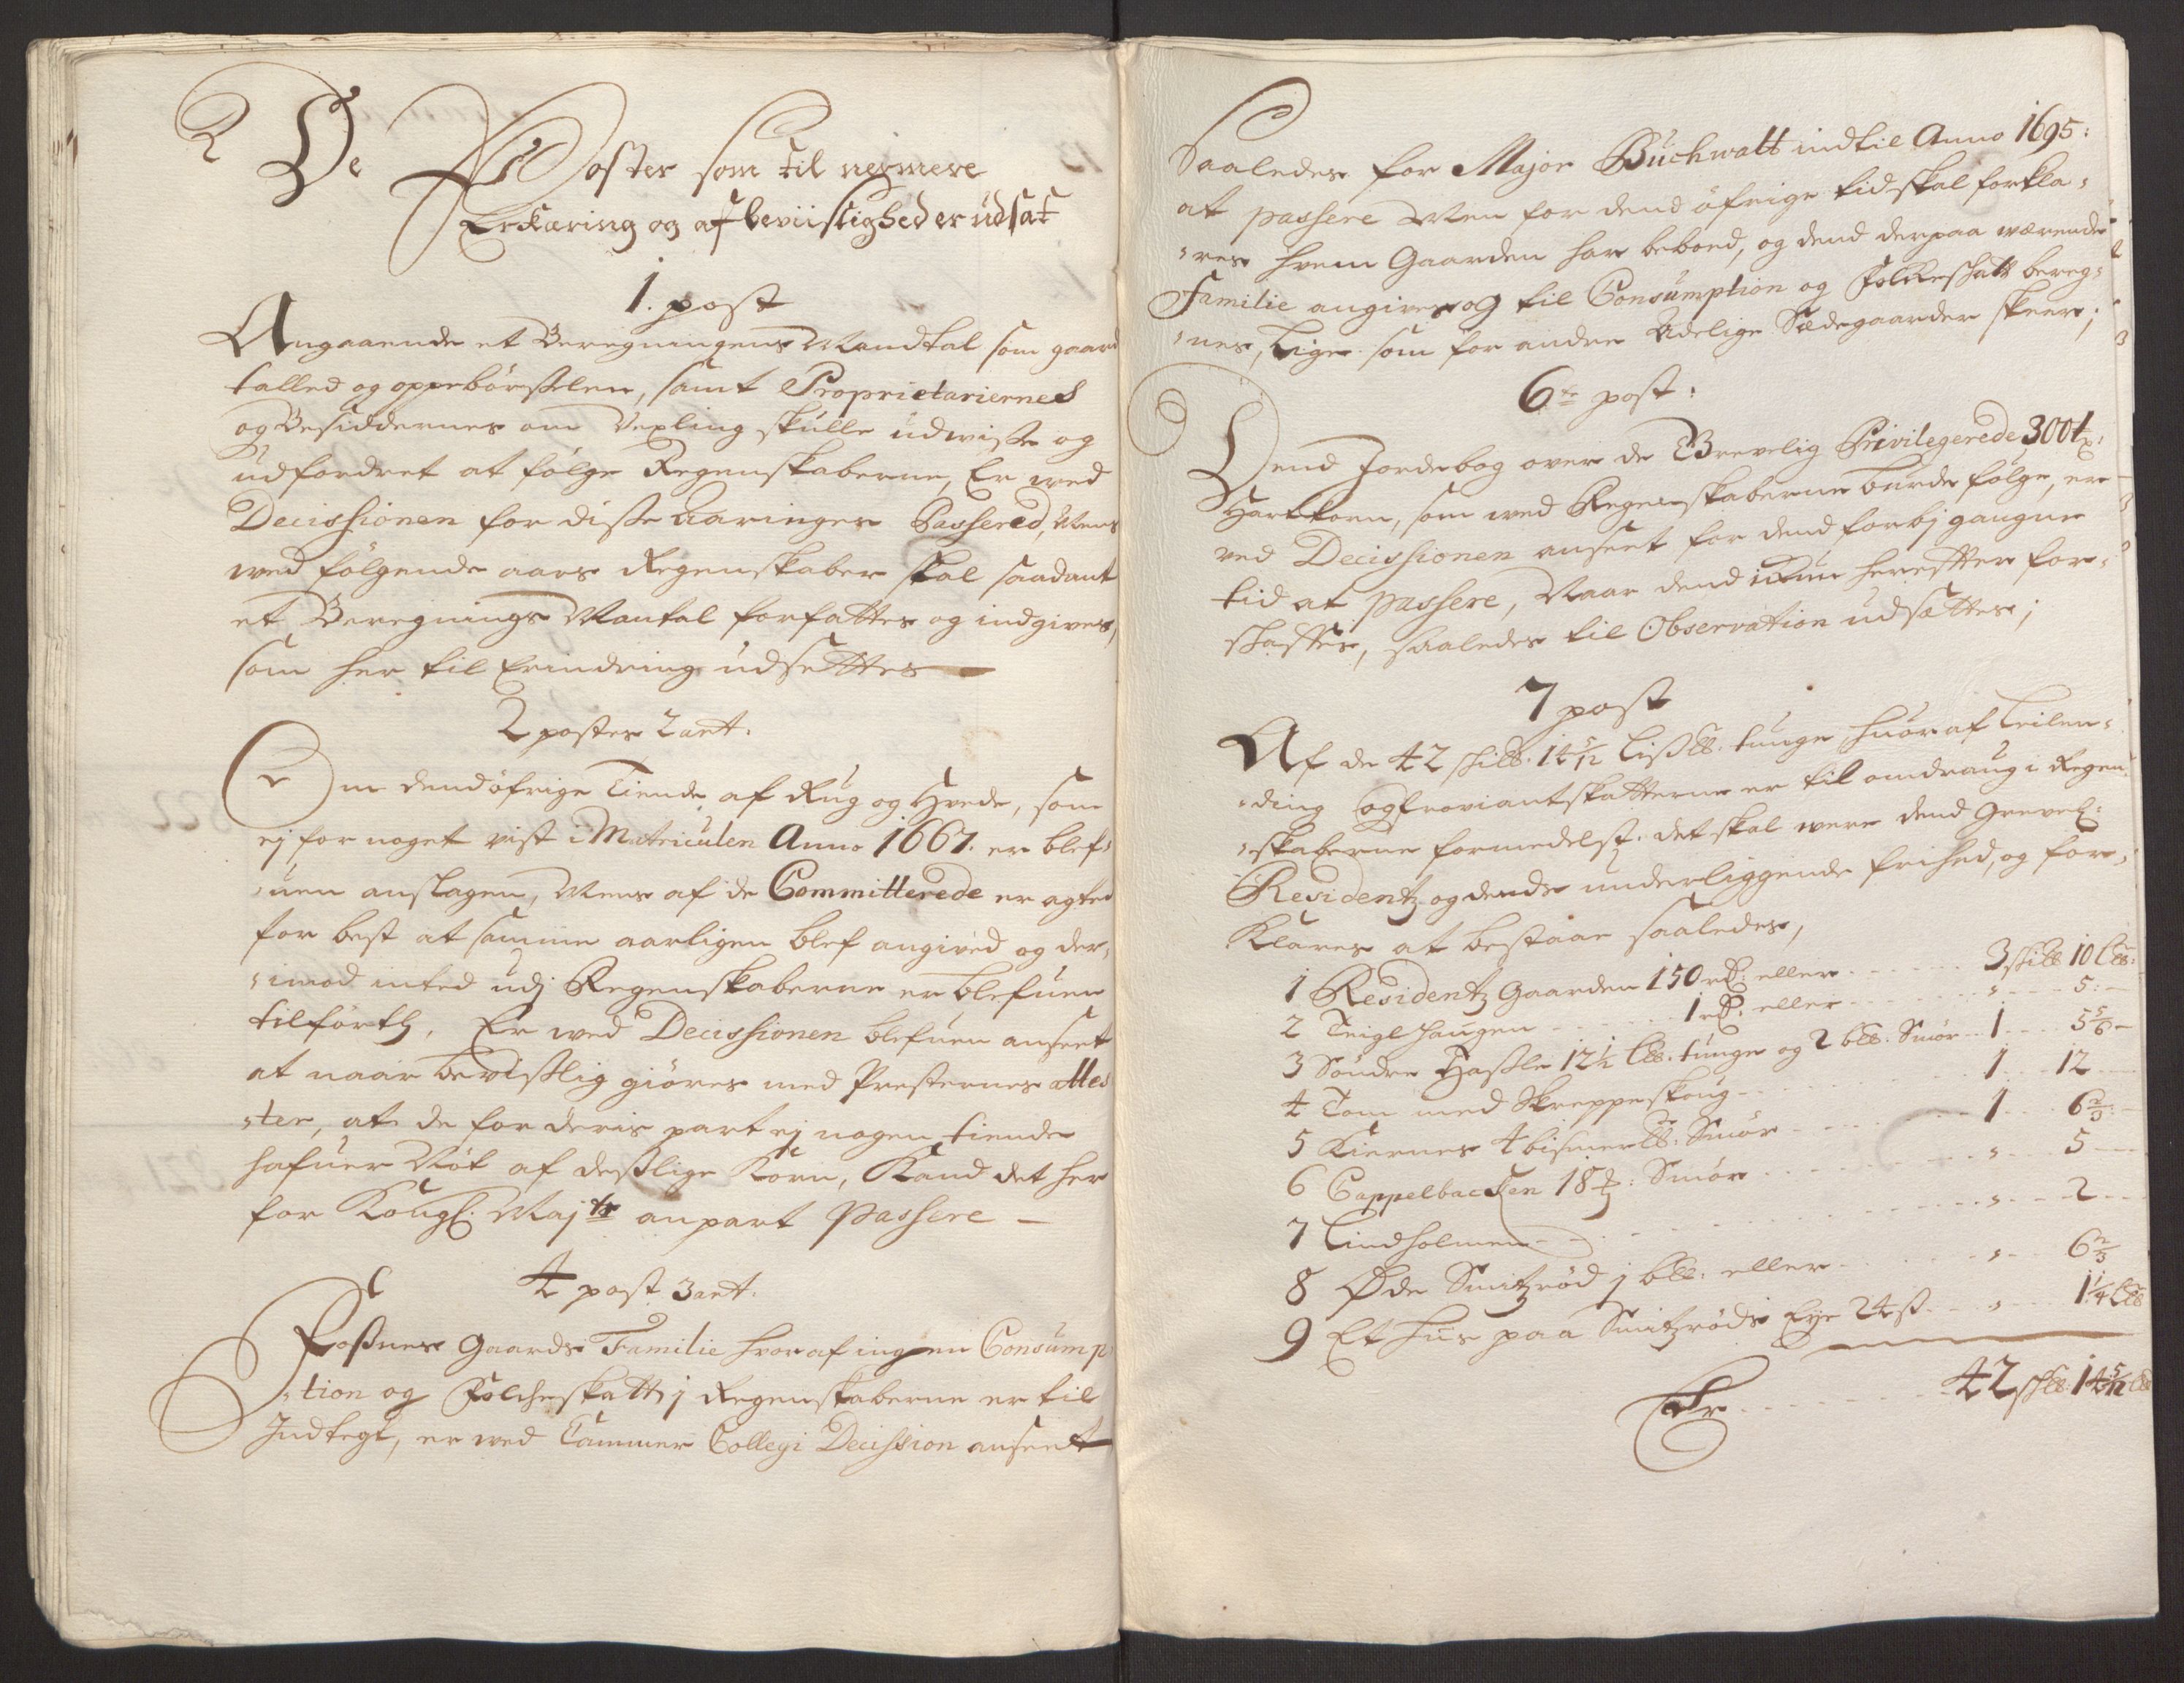 De Poster som til nermere
Erklæring og af beviislighed er udsat
1. post
Angaaende et Beregnings Mandtal som gaard
tallet og oppebørselen, samt Proprietariernes
og Besiddernes om Vexling skulle udwise og
udfordret at følge Regenskaberne, Er ved
Decissionen for disse aaringer Passered, Mens
med følgende aars Regenskaber skal saadant
et Beregnings Mantal forfattes og indgives,
som her til Erindring udsettes —
2 postes 2 ant.
Om dend øfrige Tiende af Rug og Hvede, som
ej for noget vist i Matriculen Anno 1667. er blef-
-uen anslagen, Mens af de Committerede er agted
for best at samme aarligen blef angived og der-
-imod inted udj Regenskaberne er blefuen
tilførth, Er wed Decissionen blefuen anseet
at naar bevislig giøres med Presternes atte-
-ster, at de for deris part ej nogen tiende
hafuer Nøt af deslige Korn, Kand det her
for Kongl. Majts anpart Passere —
4 post 3 ant.
Fosnes Gaards Familie hvoraf ingen Consump-
-tion og Folcheskatt j Regenskaberne er til
Indtegt, er wed Cammer Collegi Decission anseet
Saaledes for Major Buchwatt indtil Anno 1695:
at passere Men for dend øfrige tid skal forkla-
-res hvem Gaarden har beboed, og dend derpaa værende
Familie angives og til Consumption og Folkeschatt bereg-
-nes, Lige som for andre Adelige Sædegaarder skeer;
6te post:
Dend Jordebog over de Grevelig Privilegerede 300 t
Hartkorn, som wed Regenskaberne burde følge, er
ved Decissionen anseet for dend forbj gangne
tid at passere, Naar dend ikun herefter for-
skaffes, saaledes til Observation udsættes;
7 post
Af de 42 skilb. 14 5/12 Lislb. tunge, huoraf Leilen-
-ding og Proviantskatterne er til omdraug i Regen-
-skaberne formedelst. det skal were dend Grevel:
Residentz og dends underliggende frihed, og for-
klares at bestaae saaledes,
1 Residentz Gaarden 150 rd: eller . . . 3 skilb 10 Lb:
2 Teigl Haugen . . . 1 rd: eller . . . " . . . 5:
3 Søndre Hasle 12 1/2 Lb. tunge og 2 blb. Smør . . 1 . . . 5 5/6
4 Tom med Skreppeskoug . . . 1 . . . 12
5 Kiernes 4 bismerlb: Smør . . . 1 . . . 6 2/3
6 Cappelbacken 18 : Smør . . . " . . . 5
7 Lindholmen . . . " . . . 2
8 Øde Smitzrød j blb: eller . . . " . . . 6 2/3
9 Et huus paa Smitzrøds Eye 24 ß . . . " . . . 1 1/4 Lb
Er . . . 42 sklb. 14 5/12 Lb